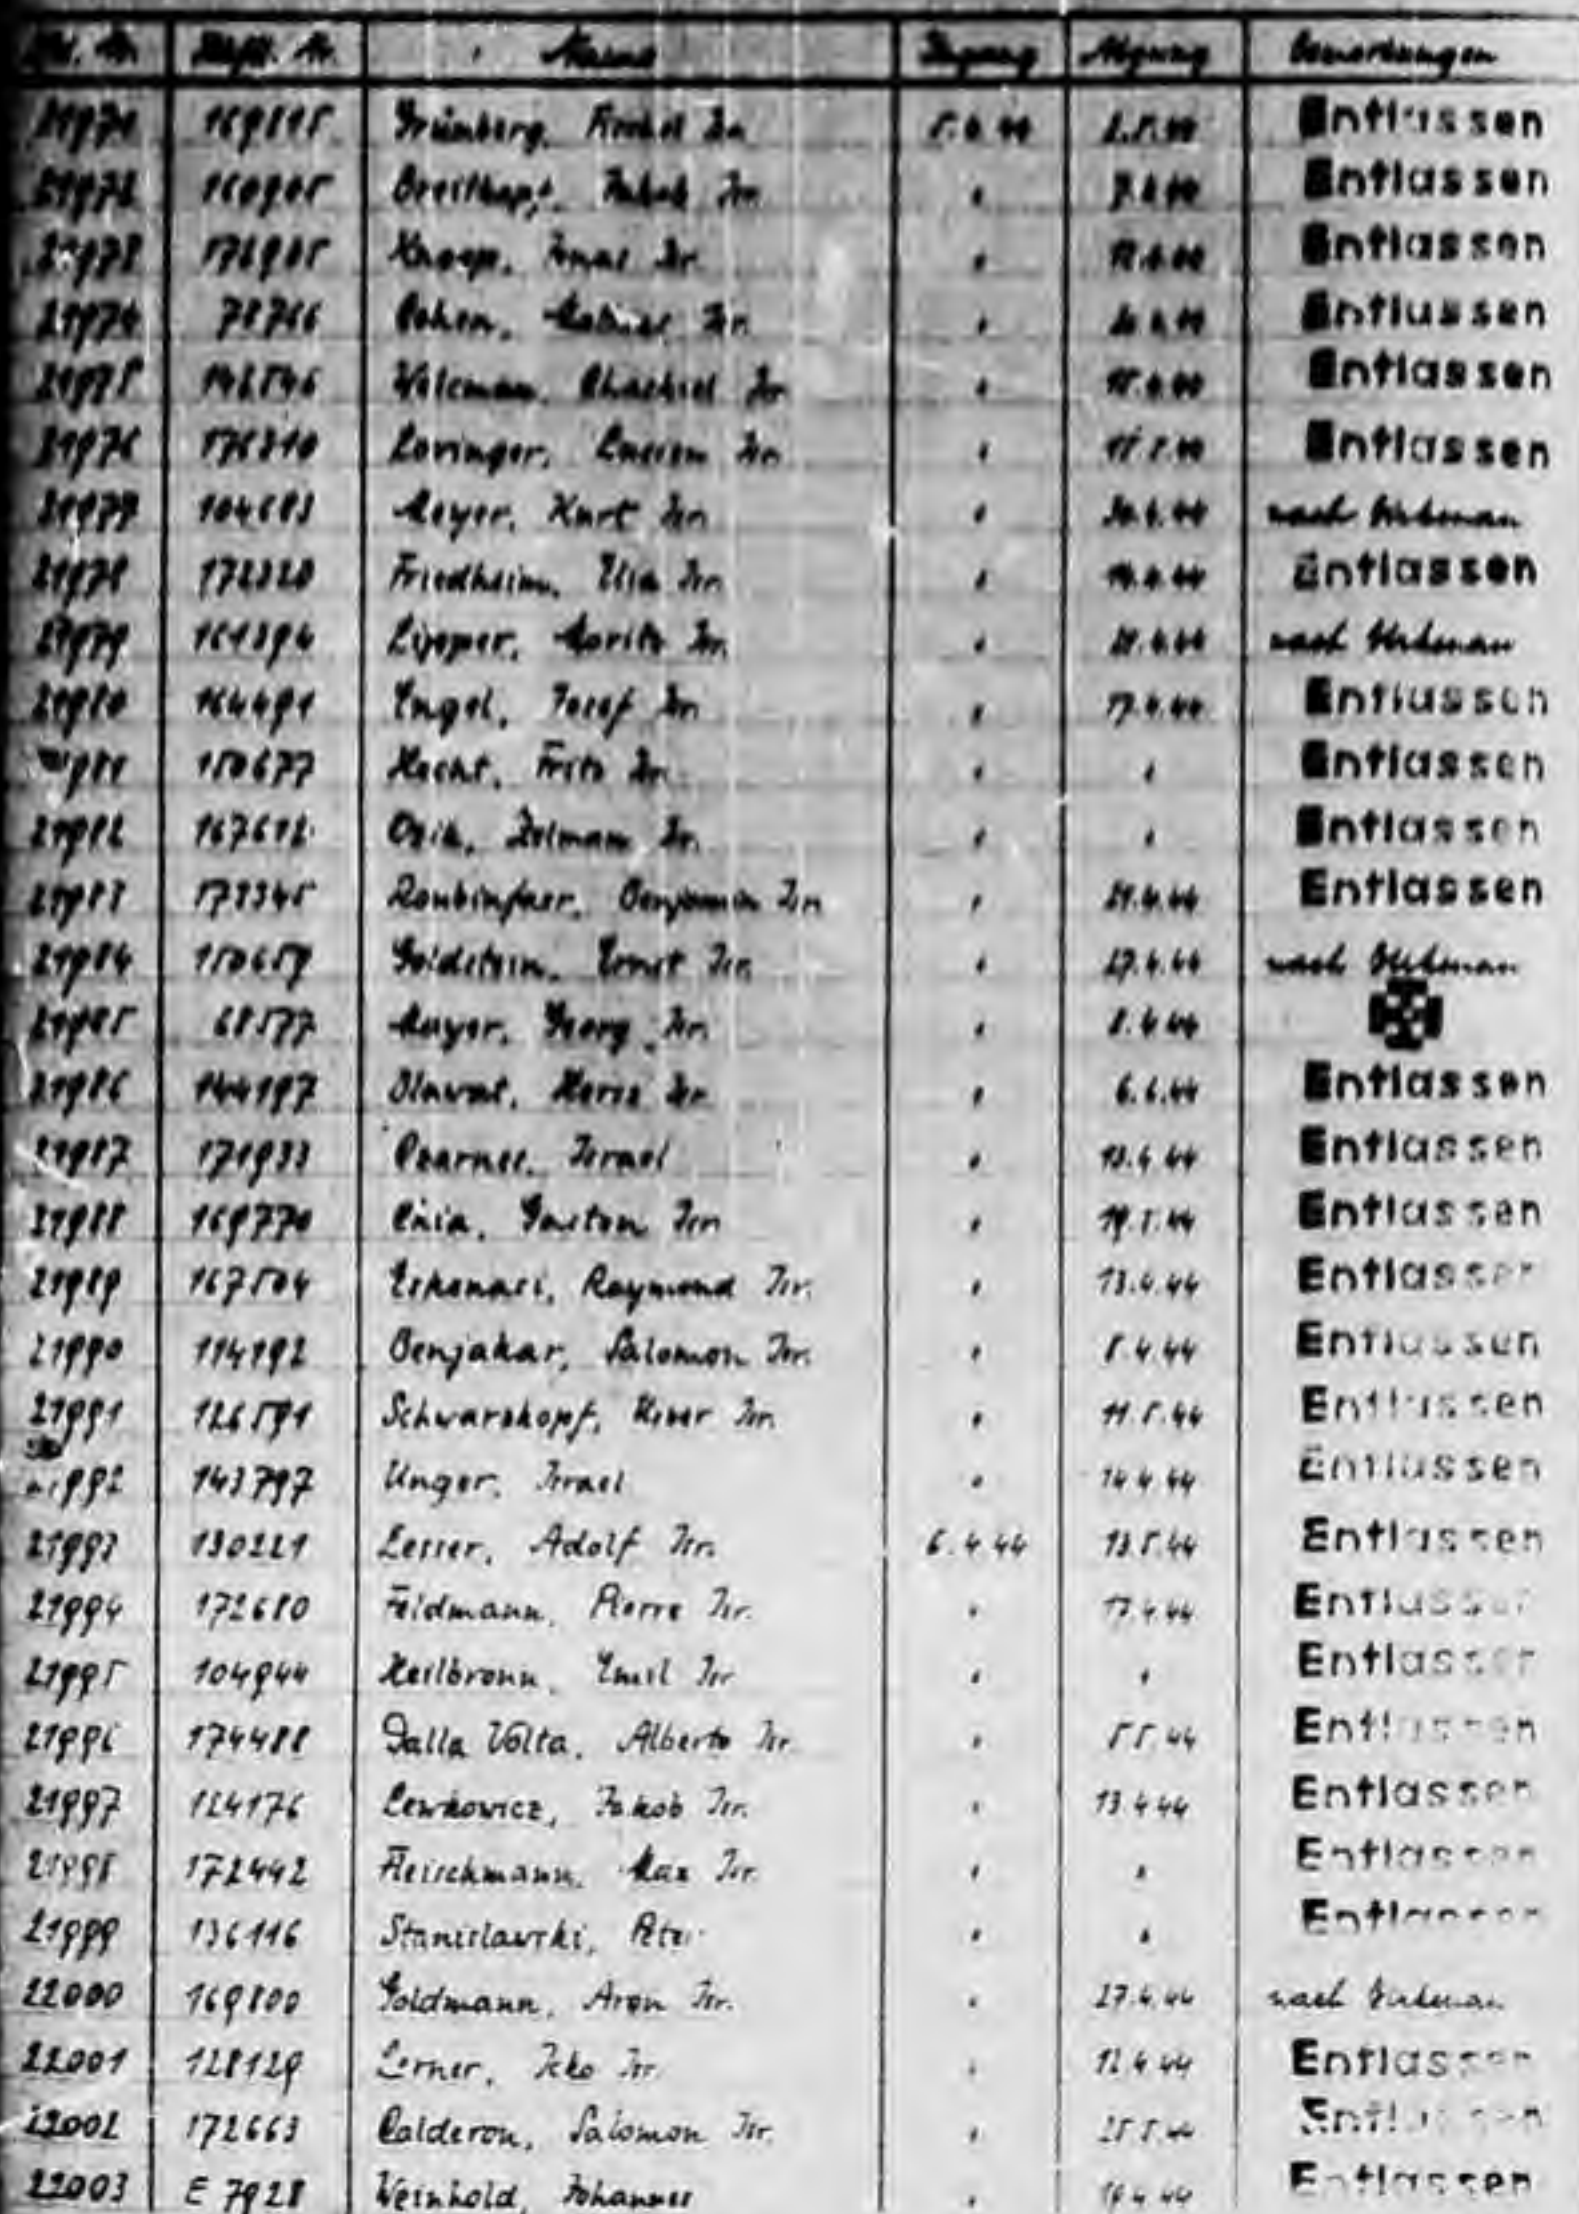 Lfd. Nr. Häftl. Nr. Name Zugang Abgang Bemerkungen
21971 Grünberg, Isr. 5.4.44 Entlassen
21972 Isr. " Entlassen
21973 176985 Knoop, Jonas Isr. " Entlassen
21974 Cohen, Isr. " Entlassen
21975 142546 Isr. " Entlassen
21976 176310 Lovinger, Isr. " Entlassen
21977 Meyer, Kurt Isr. " nach Birkenau
21978 172320 Friedheim, Isr. " 14.4.44 Entlassen
21979 161394 Lipper, Moritz Isr. " nach Birkenau
21980 164491 Engel, Josef Isr. " 17.4.44 Entlassen
21981 150677 Hecht, Fritz Isr. " " Entlassen
21982 167612 Isr. " " Entlassen
21983 Benjamin Isr. " 21.4.44 Entlassen
21984 150659 Goldstein, Ernst Isr. " 27.4.44 nach Birkenau
21985 68577 Mayer, Georg Isr. " 8.4.44
21986 144197 Isr. " 6.6.44 Entlassen
21987 171933 Israel " 13.4.44 Entlassen
21988 169770 Gaston Isr. " 19.5.44 Entlassen
21989 167504 Eskenasi, Raymond Isr. " 13.4.44 Entlassen
21990 114192 Benjakar, Salomon Isr. " 8.4.44 Entlassen
21991 126591 Schwarzkopf, Isr. " 11.5.44 Entlassen
21992 143797 Unger, Israel " 14.4.44 Entlassen
21993 130221 Lesser, Adolf Isr. 6.4.44 13.5.44 Entlassen
21994 172680 Feldmann, Pierre Isr. " 17.4.44 Entlassen
21995 104944 Heilbronn, Emil Isr. " " Entlassen
21996 174488 Dalla Volta, Alberto Isr. " 5.5.44 Entlassen
21997 124176 Lewkowicz, Jakob Isr. " 13.4.44 Entlassen
21998 172442 Fleischmann, Max Isr. " " Entlassen
21999 136116 Stanislawski, Peter " " Entlassen
22000 169800 Goldmann, Aron Isr. " 27.4.44 nach Birkenau
22001 128129 Lerner, Icko Isr. " 12.4.44 Entlassen
22002 172663 Calderon, Salomon Isr. " 25.5.44 Entlassen
22003 E 7928 Weinhold, Johannes " Entlassen